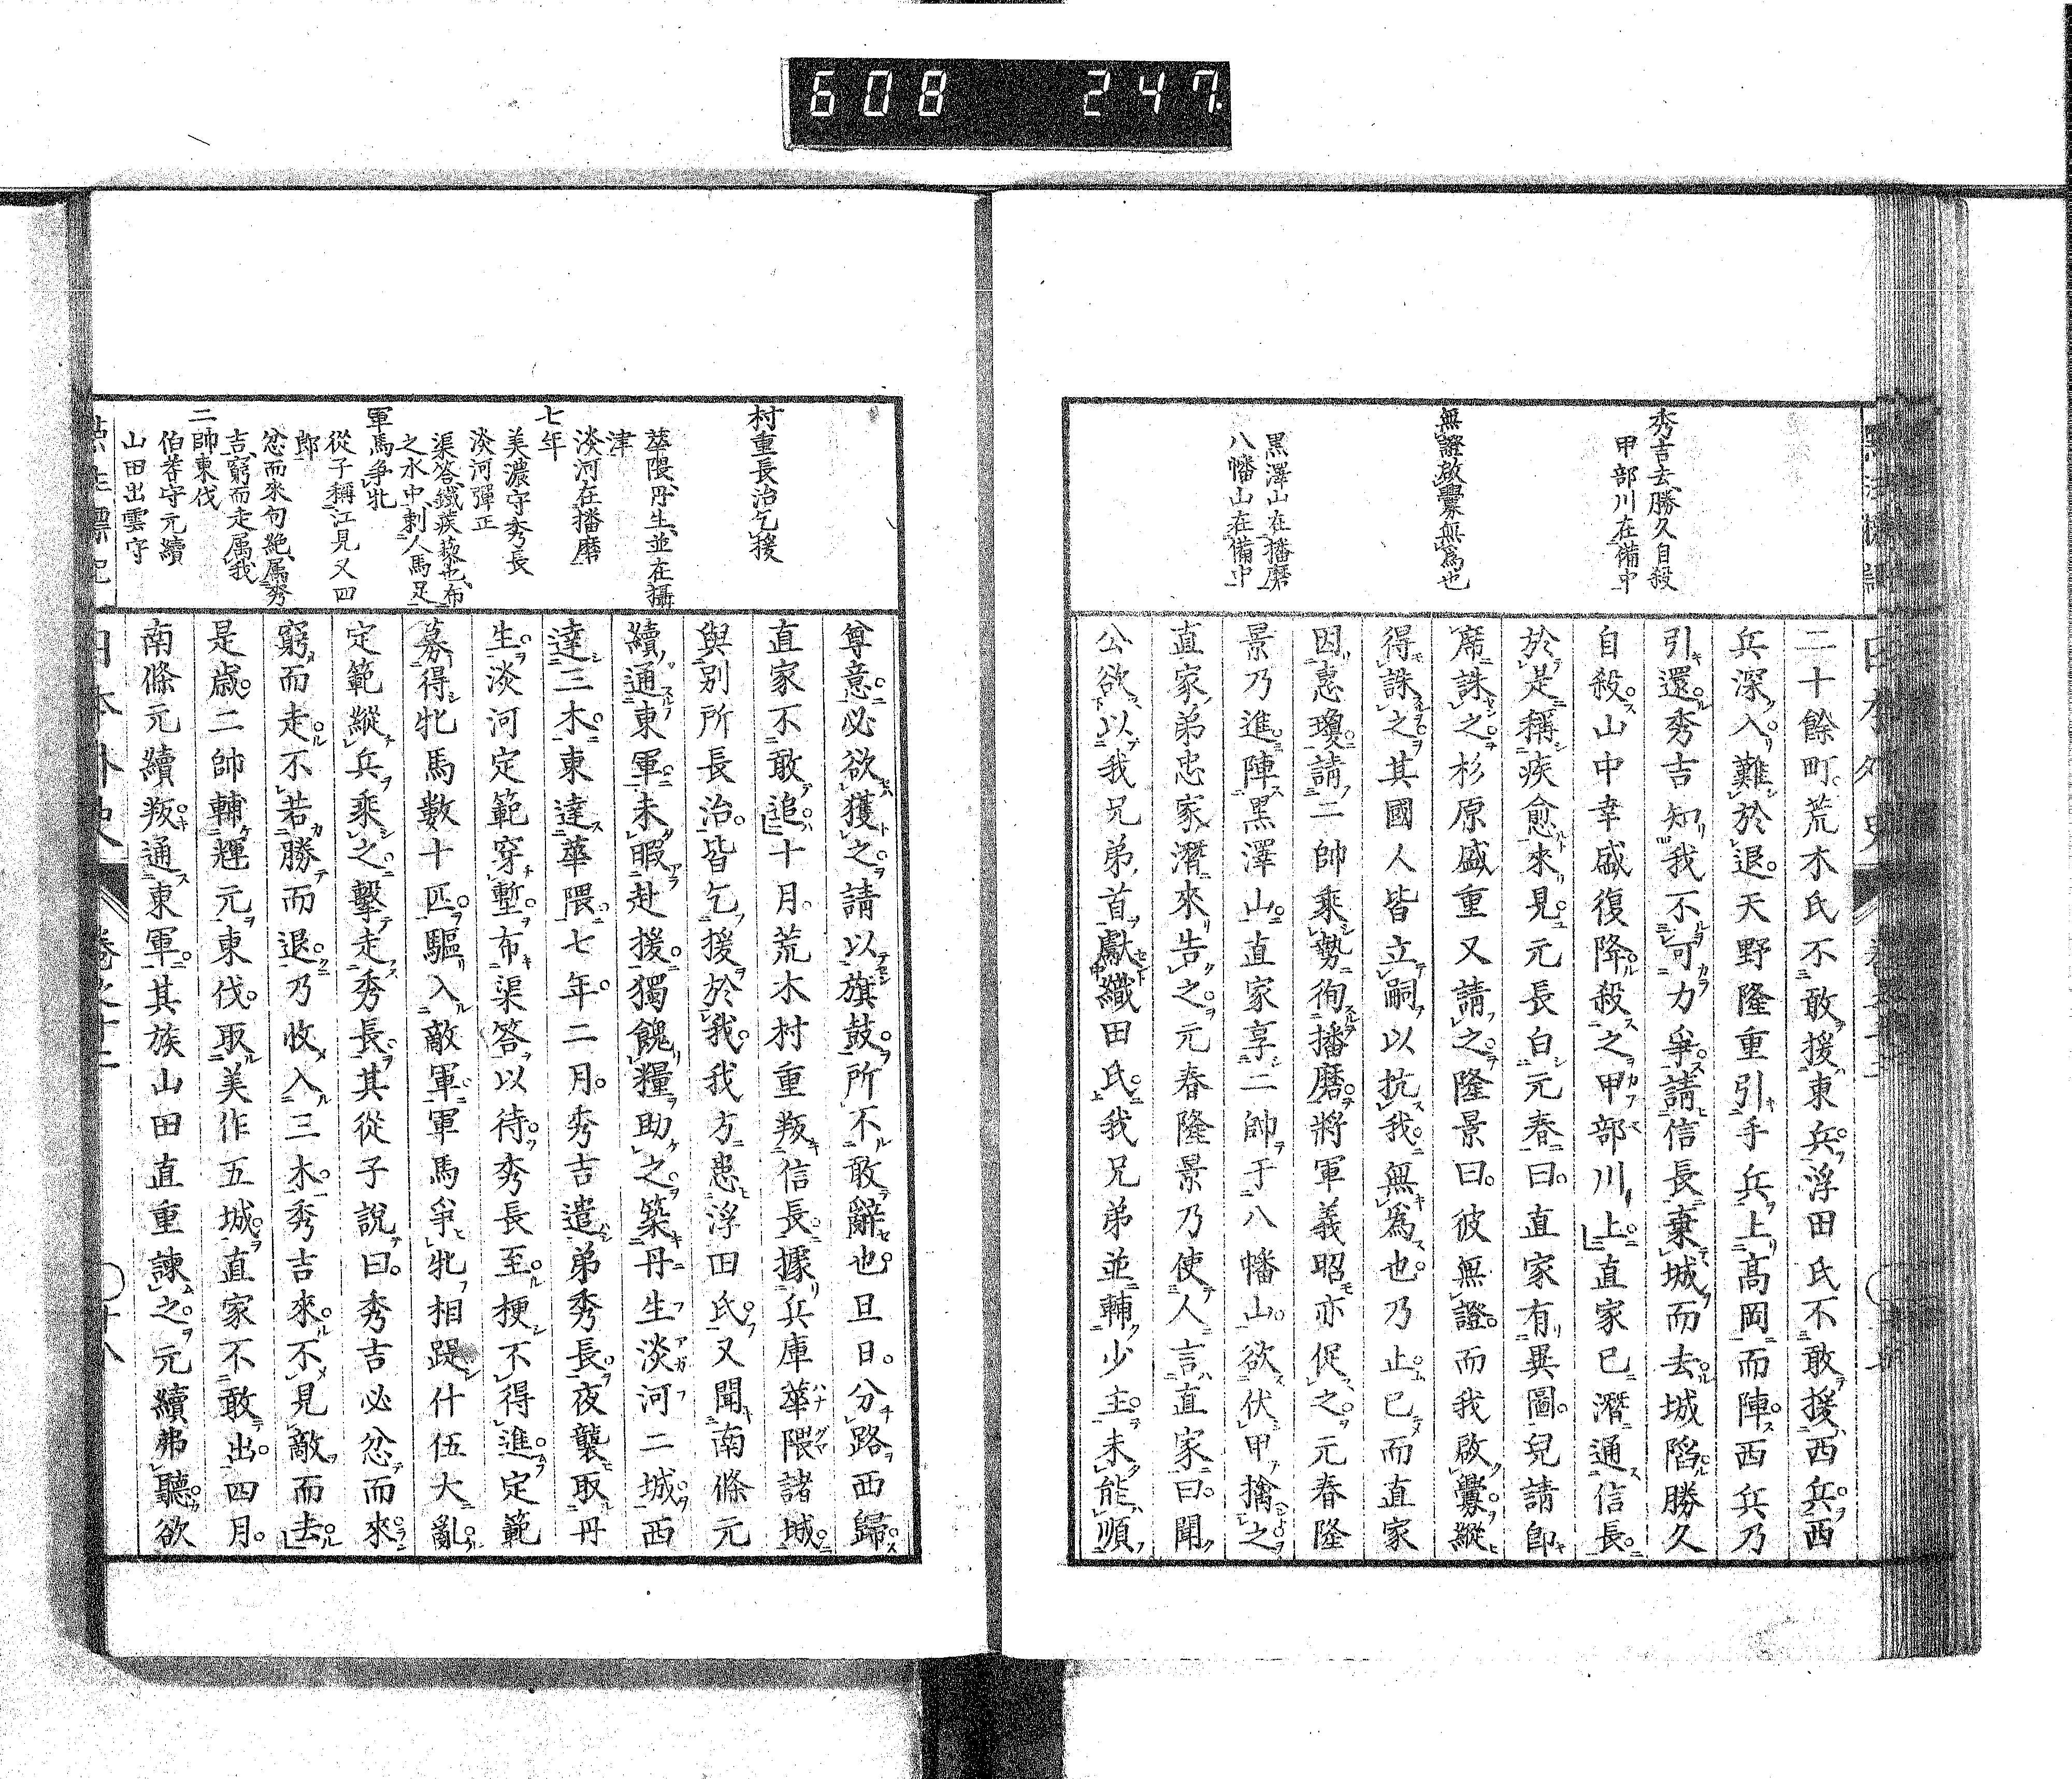 608 247
秀吉去、勝久自殺
甲部川在備中
無證啟釁無為也
黒澤山在播磨
八幡山在備中
二十餘町荒木氏不敢援東兵浮田氏不敢援西兵西
兵深入難於退天野隆重引手兵上高岡而陣西兵乃
引還秀吉知我不可力爭請信長棄城而去城陷勝久
自殺山中幸盛復降殺之甲部川上直家已潛通信長
於是稱疾愈來見元長白元春曰直家有異圖兒請即
席誅之杉原盛重又請之隆景曰彼無證而我啟釁縱
得誅之其國人皆立嗣以抗我無為也乃止已而直家
因惠瓊請二帥乘勢徇播磨將軍義昭亦促之元春隆
景乃進陣黒澤山直家享二帥于八幡山欲伏甲擒之
直家弟忠家潛來告之元春隆景乃使人言直家曰聞
公欲以我兄弟首獻織田氏我兄弟並輔少主未能順
村重長治乞援
華隈、丹生、並在攝
津
淡河在播磨
七年
美濃守秀長
淡河彈正
渠答、鐵蒺藜也、布
之水中、刺人馬足
軍馬爭牝
從子稱江見又四
郎
忿而來句絶、属秀
吉、窮而走属我
二帥東伐
伯耆守元續
山田出雲守
尊意必欲獲之請以旗鼓所不敢辭也旦日分路西歸
直家不敢追十月荒木村重叛信長據兵庫華隈諸城
與別所長治皆乞援於我我方患浮田氏又聞南條元
續通東軍未暇赴援獨餽糧助之築丹生淡河二城西
達三木東達華隈七年二月秀吉遣弟秀長夜襲取丹
生淡河定範穿塹布渠答以待秀長至梗不得進定範
募得牝馬數十匹驅入敵軍軍馬爭牝相踶什伍大亂
定範縱兵乘之擊走秀長其從子說曰秀吉必忿而來
窮而走不若勝而退乃收入三木秀吉來不見敵而去
是歲二帥輔輝元東伐取美作五城直家不敢出四月
南條元續叛通東軍其族山田直重諫之元續弗聽欲
日本外史 卷之十二